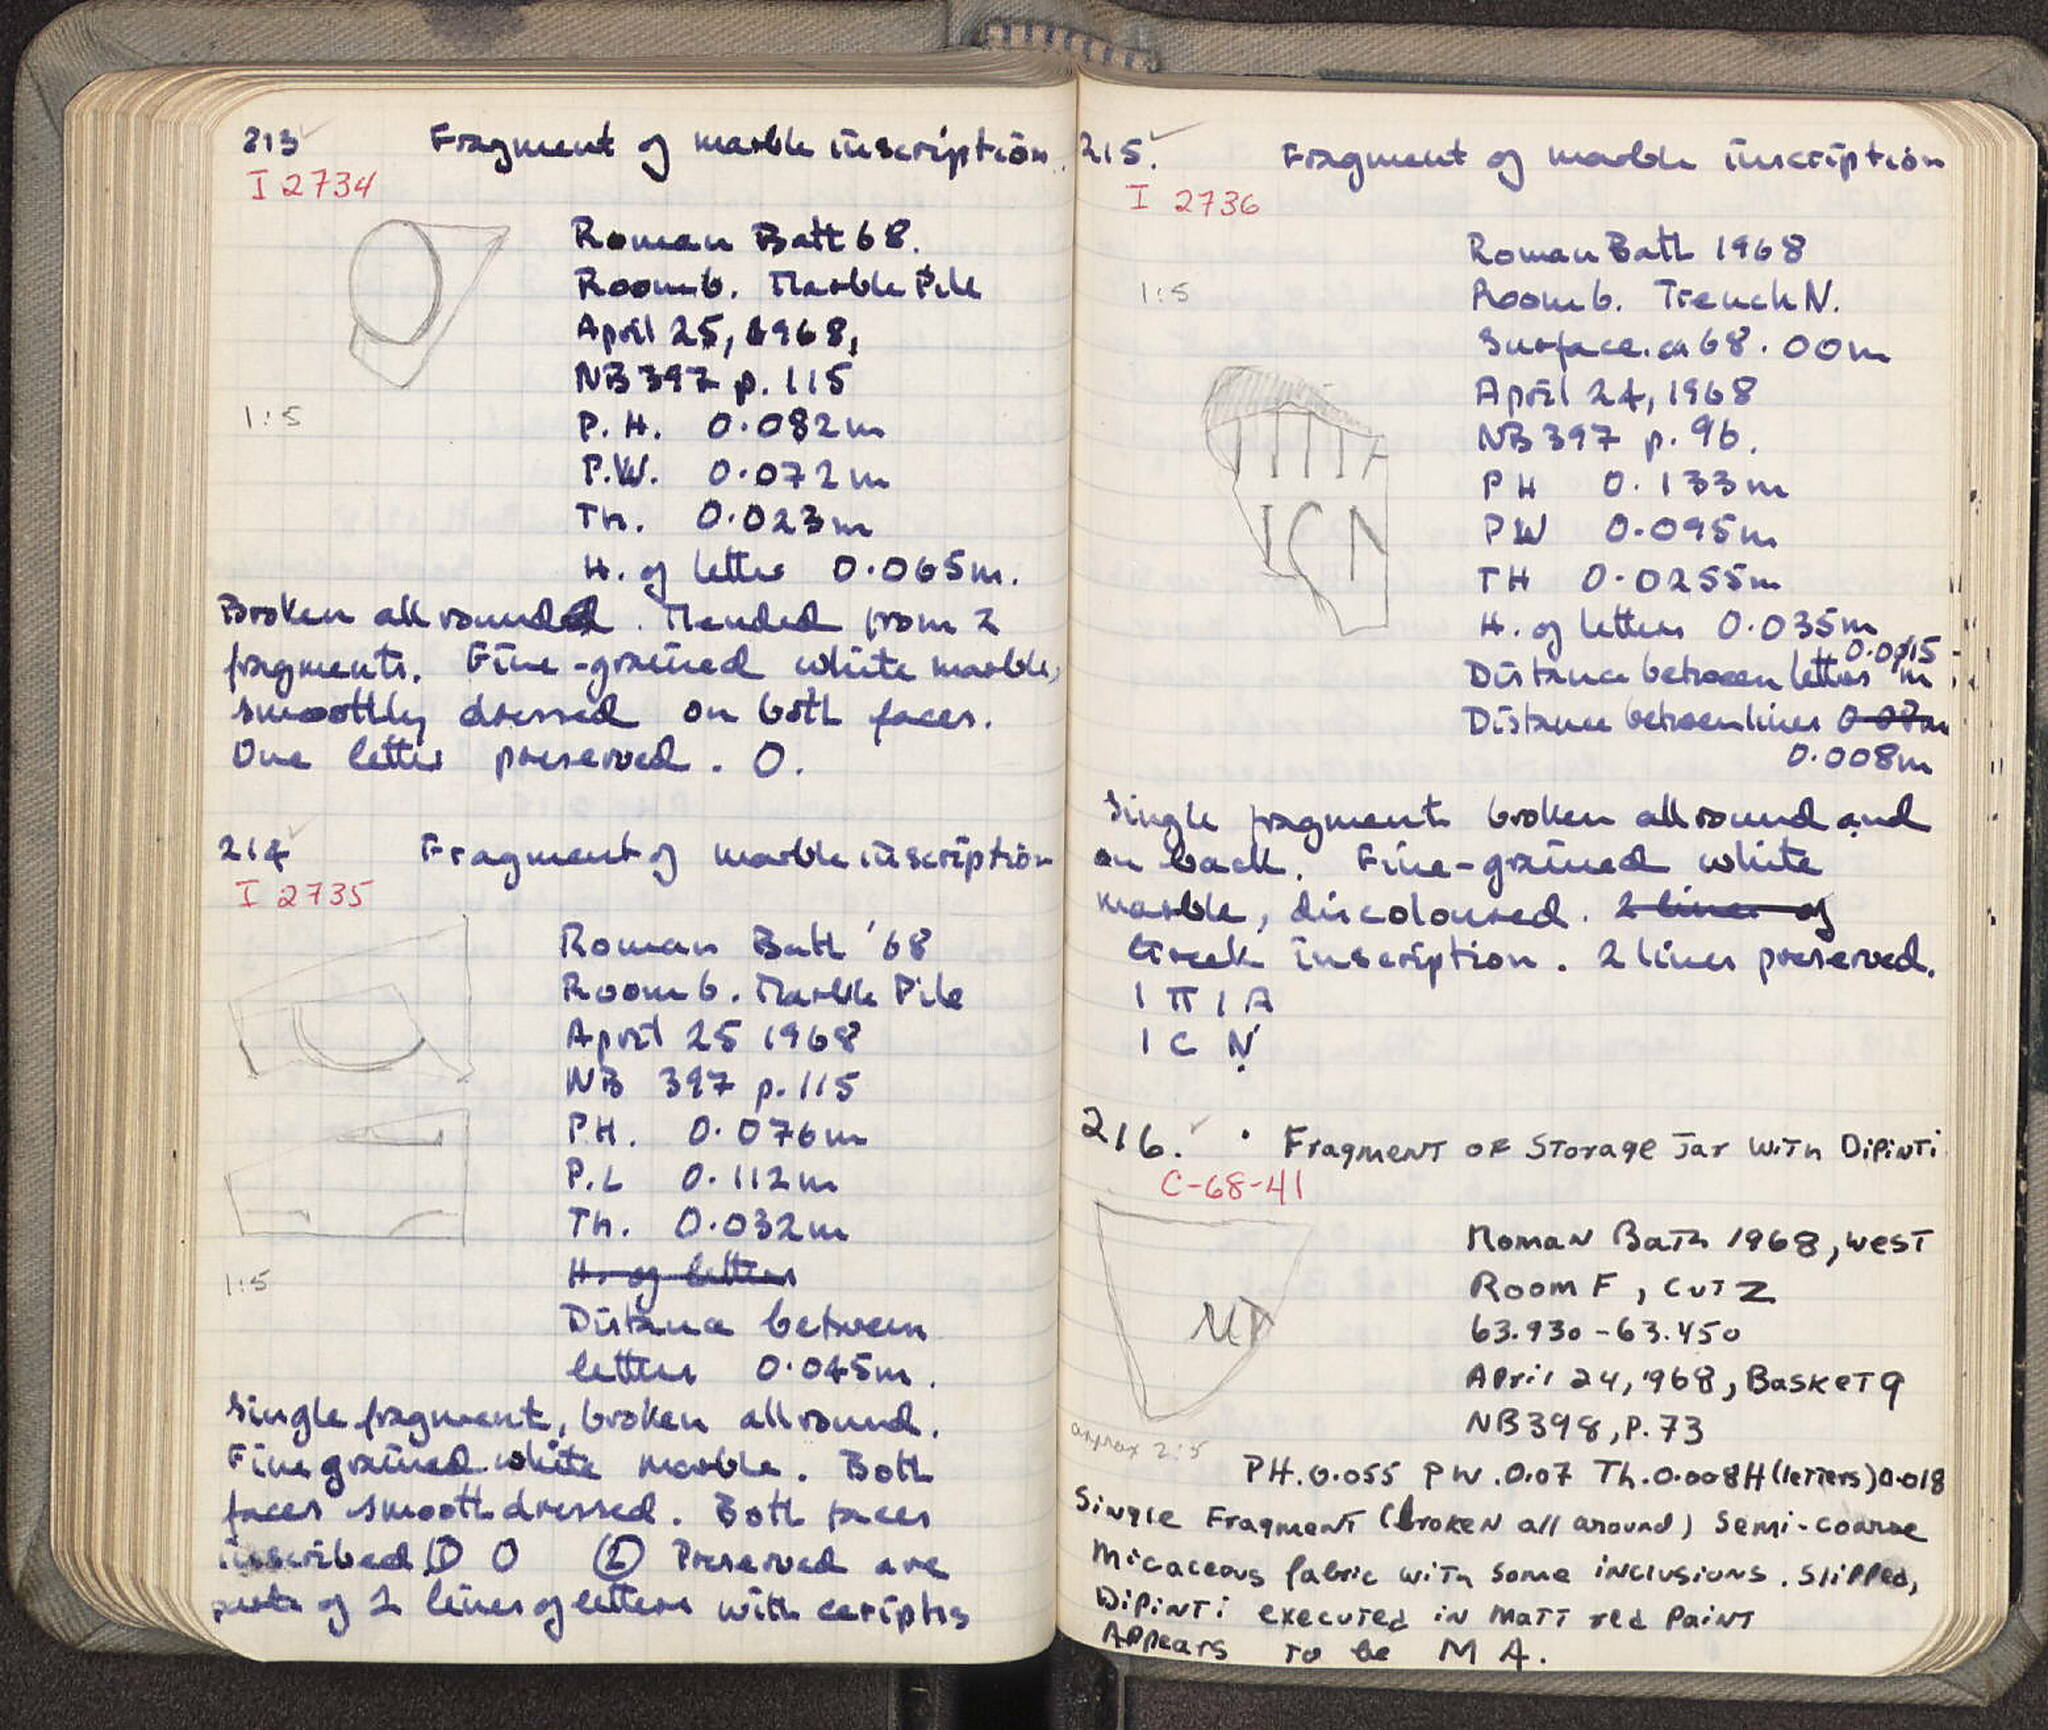 213 Fragment of marble inscription.
I 2734
Roman Bath 68.
Room 6. Marble Pile
April 25, 1968,
NB 397 p. 115
1:5
P. H. 0.082m
P.W. 0.072m
Th. 0.023m
H. of letter 0.065m.
Broken all round. Mended from 2
fragments. Fine-grained white marble,
smoothly dressed on both faces.
One letter preserved. O.
214 Fragment of marble inscription
I 2735
Roman Bath '68
Room 6. Marble Pile
April 25 1968
NB 397 p. 115
PH. 0.076m
P.L 0.112m
Th. 0.032m
H. of letters
1:5
Distance between
letters 0.045m.
Single fragment, broken all round.
Fine grained white marble. Both
faces smooth dressed. Both faces
inscribed ① O ② Preserved are
parts of 2 lines of letters with ceriphs
215. Fragment of marble inscription
I 2736
Roman Bath 1968
1:5
Room 6. Trench N.
Surface. ca 68.00m
April 24, 1968
NB 397 p. 96.
PH 0.133m
PW 0.095m
TH 0.0255m
H. of letters 0.035m
Distance between letters 0.0015 m
Distance between lines 0.07m
0.008m
ICN
Single fragment broken all round and
on back. Fine-grained white
marble, discoloured. 2 lines of
Greek inscription. 2 lines preserved.
I Π I A
I C Ṇ
216. Fragment of Storage Jar with Dipinti
C-68-41
Roman Bath 1968, West
Room F, Cut Z
63.930-63.450
April 24, 1968, Basket 9
NB 398, P. 73
approx 2:5
PH. 0.055 PW. 0.07 Th. 0.008 H (letters) 0.018
Single Fragment (broken all around) Semi-coarse
Micaceous fabric with some inclusions. Slipped,
Dipinti executed in matt red paint
Appears to be M A.